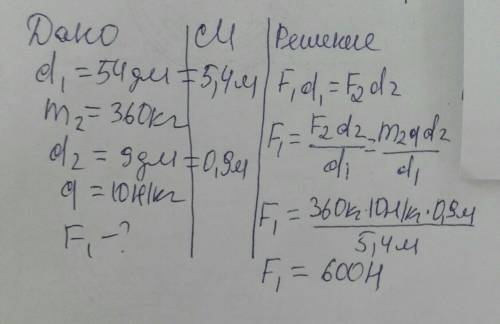 Дано
d₁ = 54дм = 5,4м
m₂ = 360кг
d₂ = 9дм = 0,9м
g = 10Н/кг
F₁ – ?
СИ
Решение
F₁d₁ = F₂d₂
F₁ = F₂d₂/d₁ = m₂gd₂/d₁
F₁ = 360кг·10Н/кг·0,9м/5,4м
F₁ = 600Н